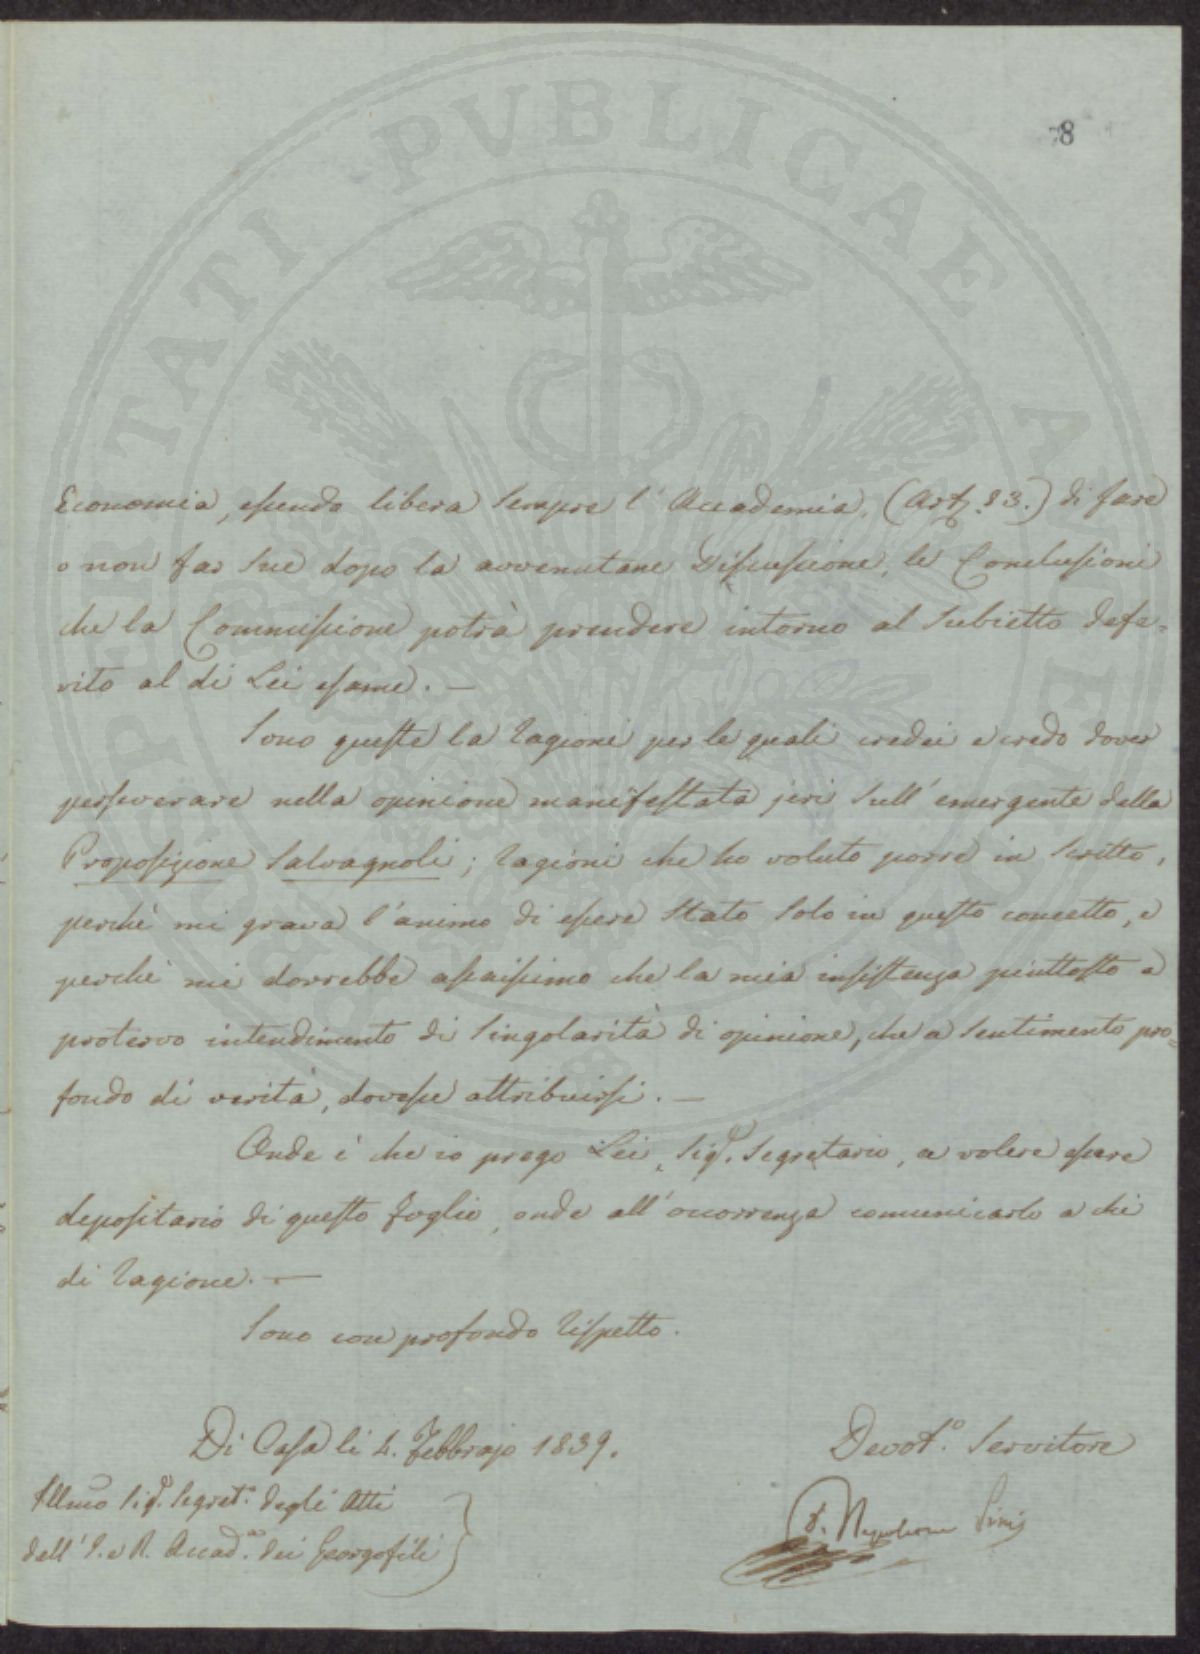 PROSPERITATI PUBLICAE AUGENDAE
8
Economia, essendo libera sempre l'Accademia, (Art. 83.) di fare
o non far sue dopo la avvenutane Discussione, le Conclusioni
che la Commissione potrà prendere intorno al subietto defe=
rito al di Lei esame. —
Sono queste la ragioni per le quali credei e credo dover
perseverare nella opinione manifestata jeri sull'emergente della
Proposizione Salvagnoli; ragioni che ho voluto porre in scritto,
perchè mi grava l'animo di essere stato solo in questo concetto, e
perchè mi dorrebbe assaissimo che la mia insistenza piuttosto a
protervo intendimento di singolarità di opinione, che a sentimento pro=
fondo di verità, dovesse attribuirsi. —
Onde è che io prego Lei, Sig.r Segretario, a volere essere
depositario di questo foglio, onde all'occorrenza comunicarlo a chi
di ragione. —
Sono con profondo rispetto.
Di Casa li 4. Febbrajo 1839.
Devot.o Servitore
Illmo Sig.r Segret.o degli Atti
dell'I. e R. Accad.a dei Georgofili
D. Napoleone Pini